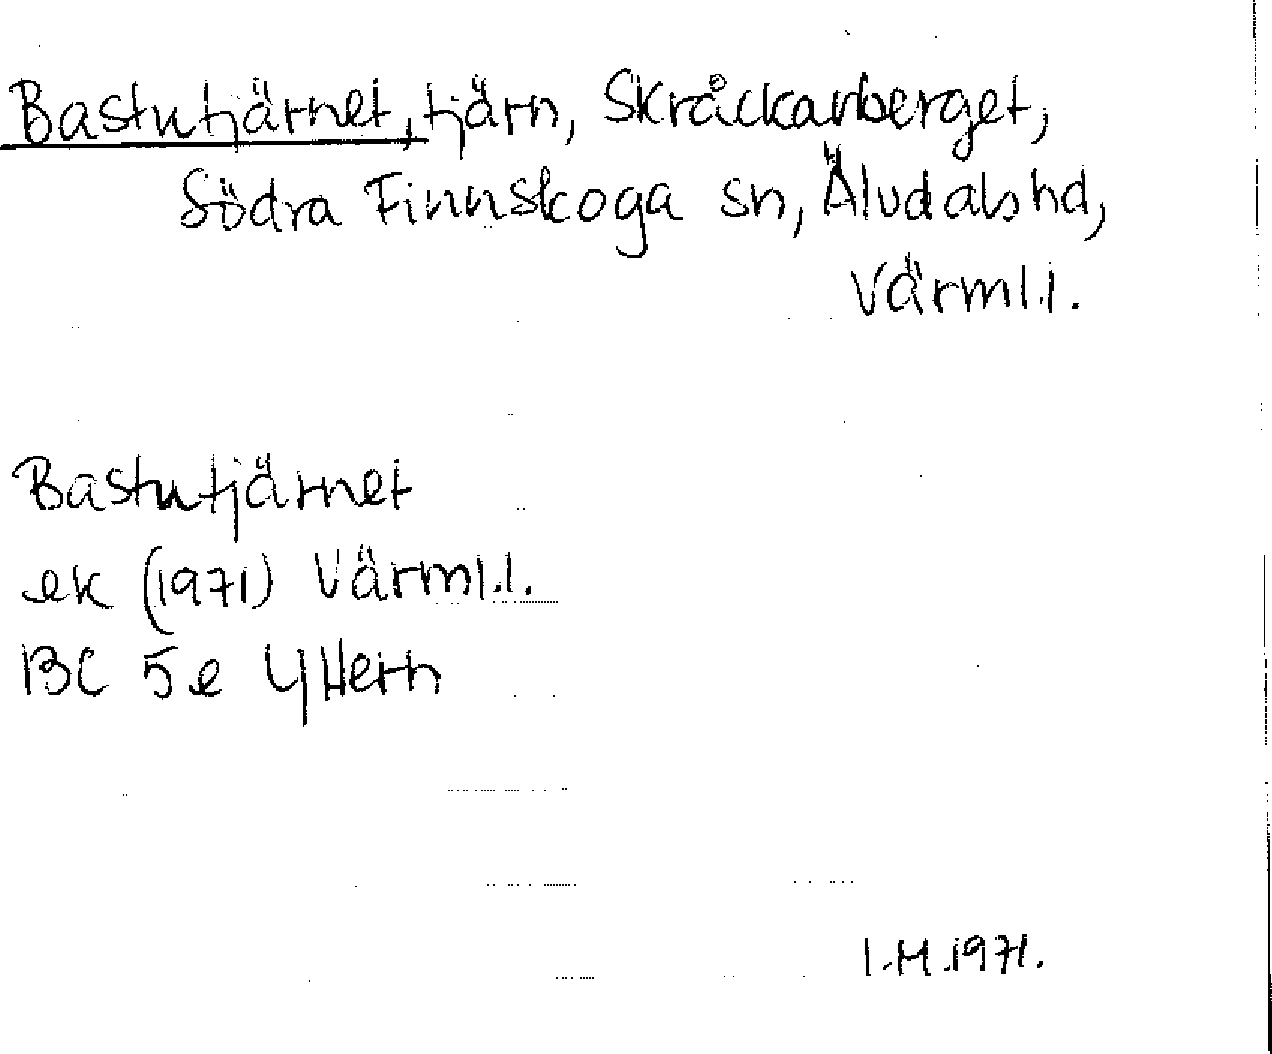 Bastutjärnet, tjärn, Skråckarberget,
Södra Finnskoga sn, Älvdals hd,
Värml.l.
Bastutjärnet
ek (1971) Värml.l.
BC 5e Y Hern
I.H.1971.